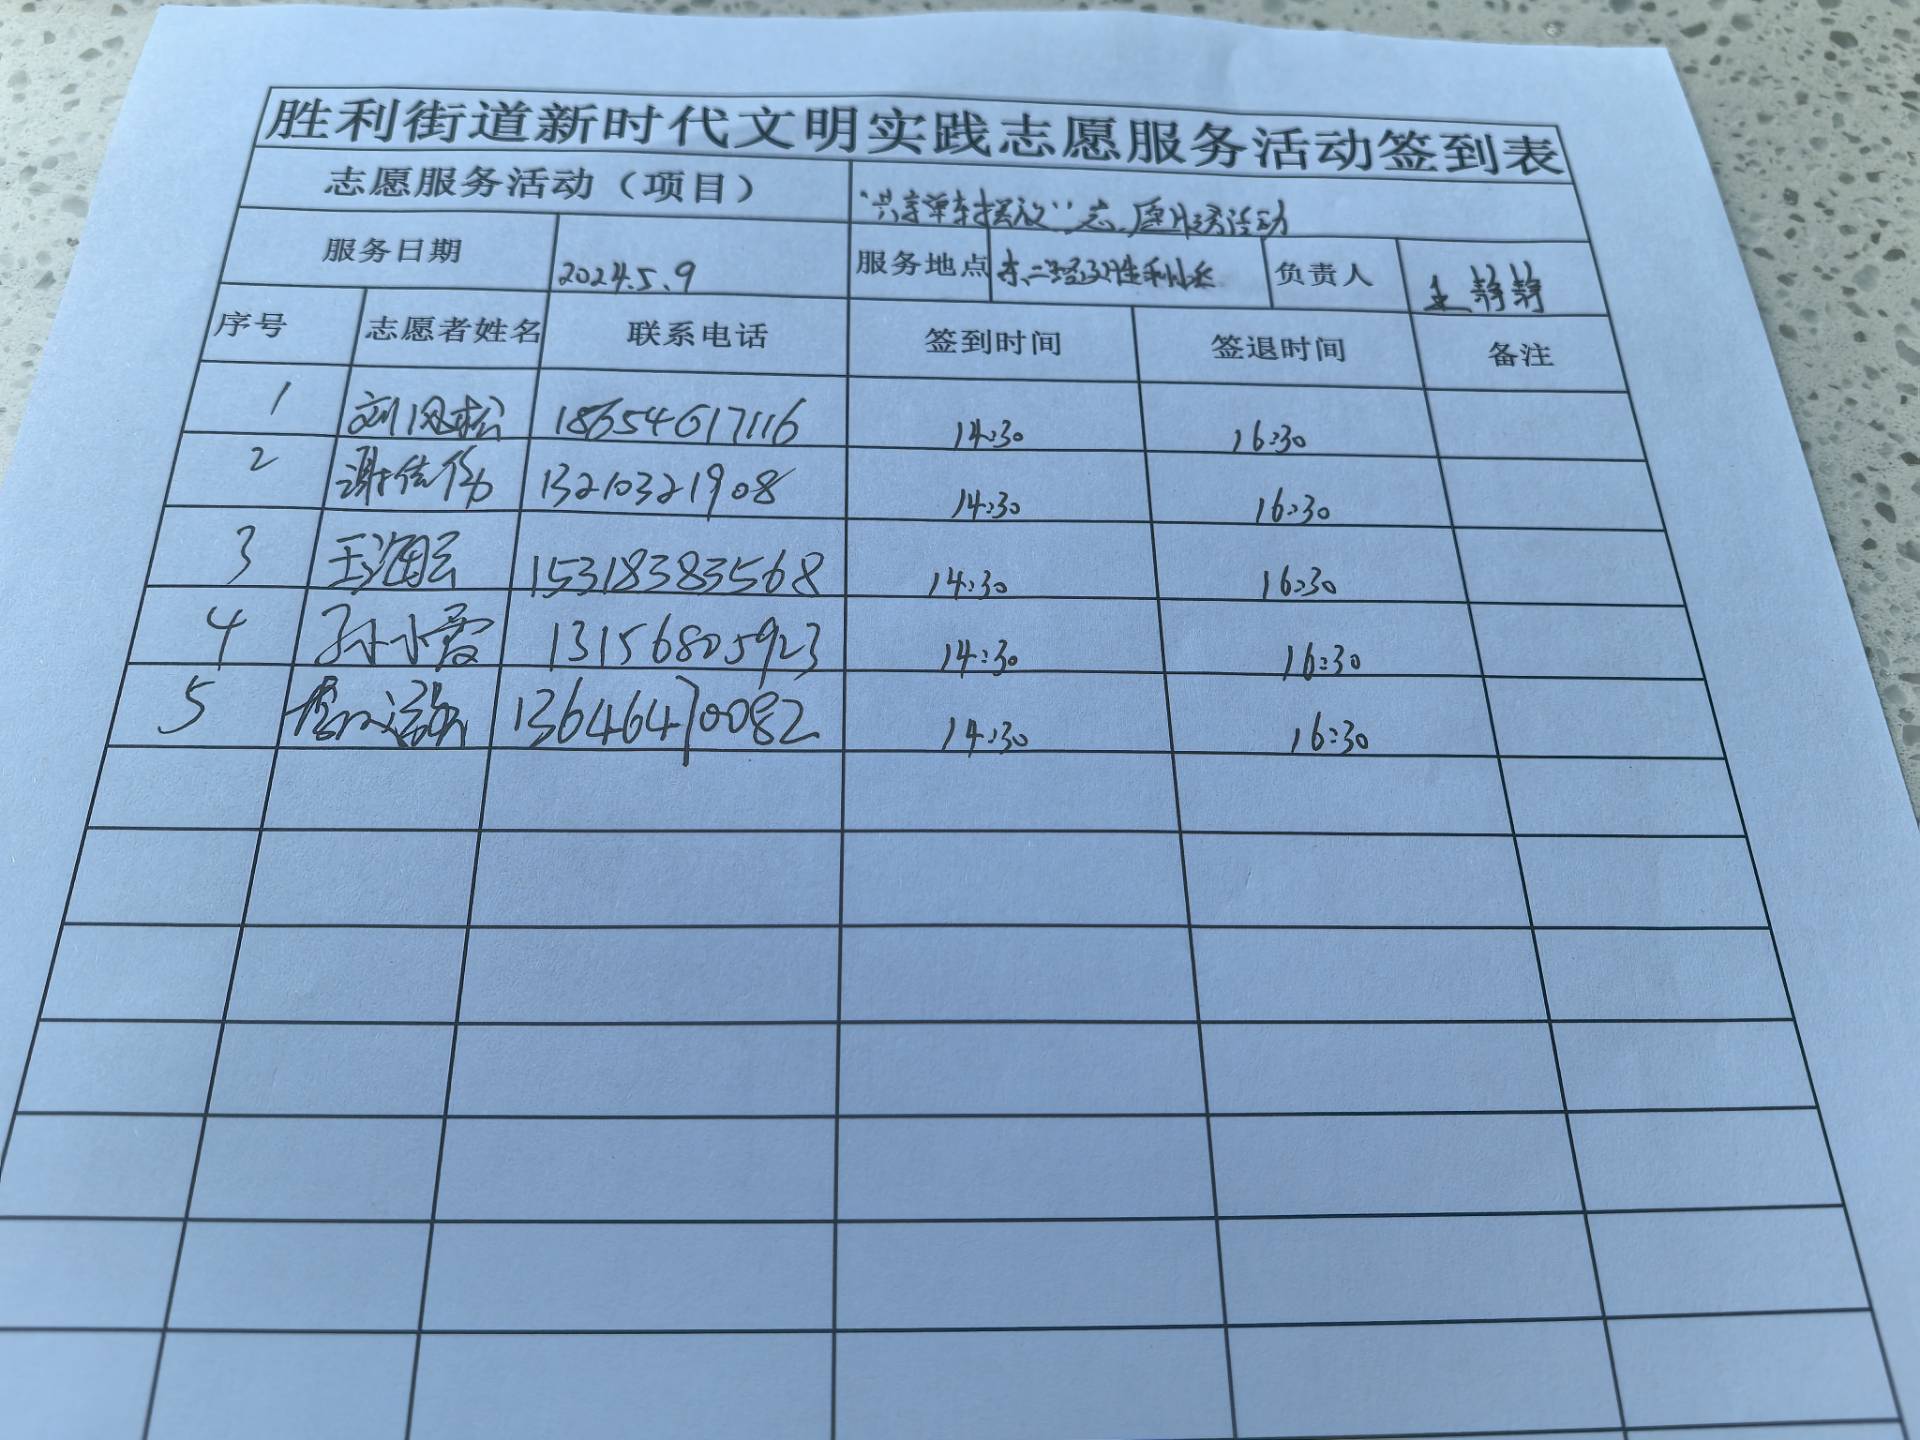 胜利街道新时代文明实践志愿服务活动签到表
志愿服务活动（项目） “共享单车摆放”志愿服务活动
服务日期 2024.5.9 服务地点 东二路 负责人 王静静
序号 志愿者姓名 联系电话 签到时间 签退时间 备注
1 18654617116 14:30 16:30
2 13210321908 14:30 16:30
3 王海云 15318383568 14:30 16:30
4 孙小霞 13156805923 14:30 16:30
5 13646470082 14:30 16:30